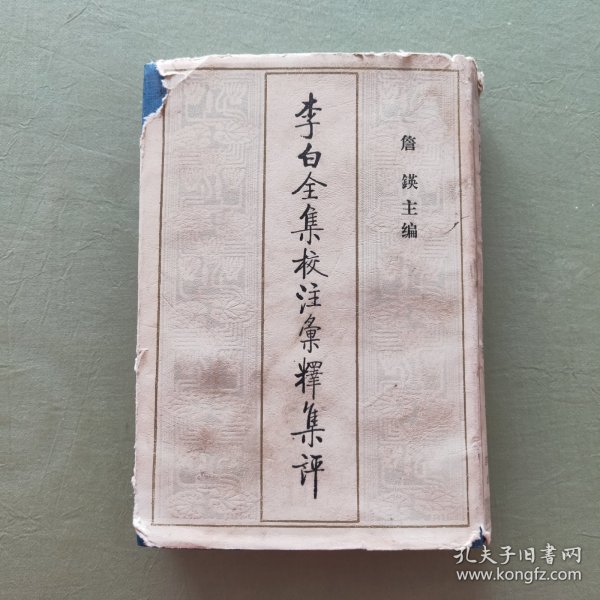 李白全集校注彙釋集評
詹鍈主编
孔夫子旧書网
www.kongfz.com